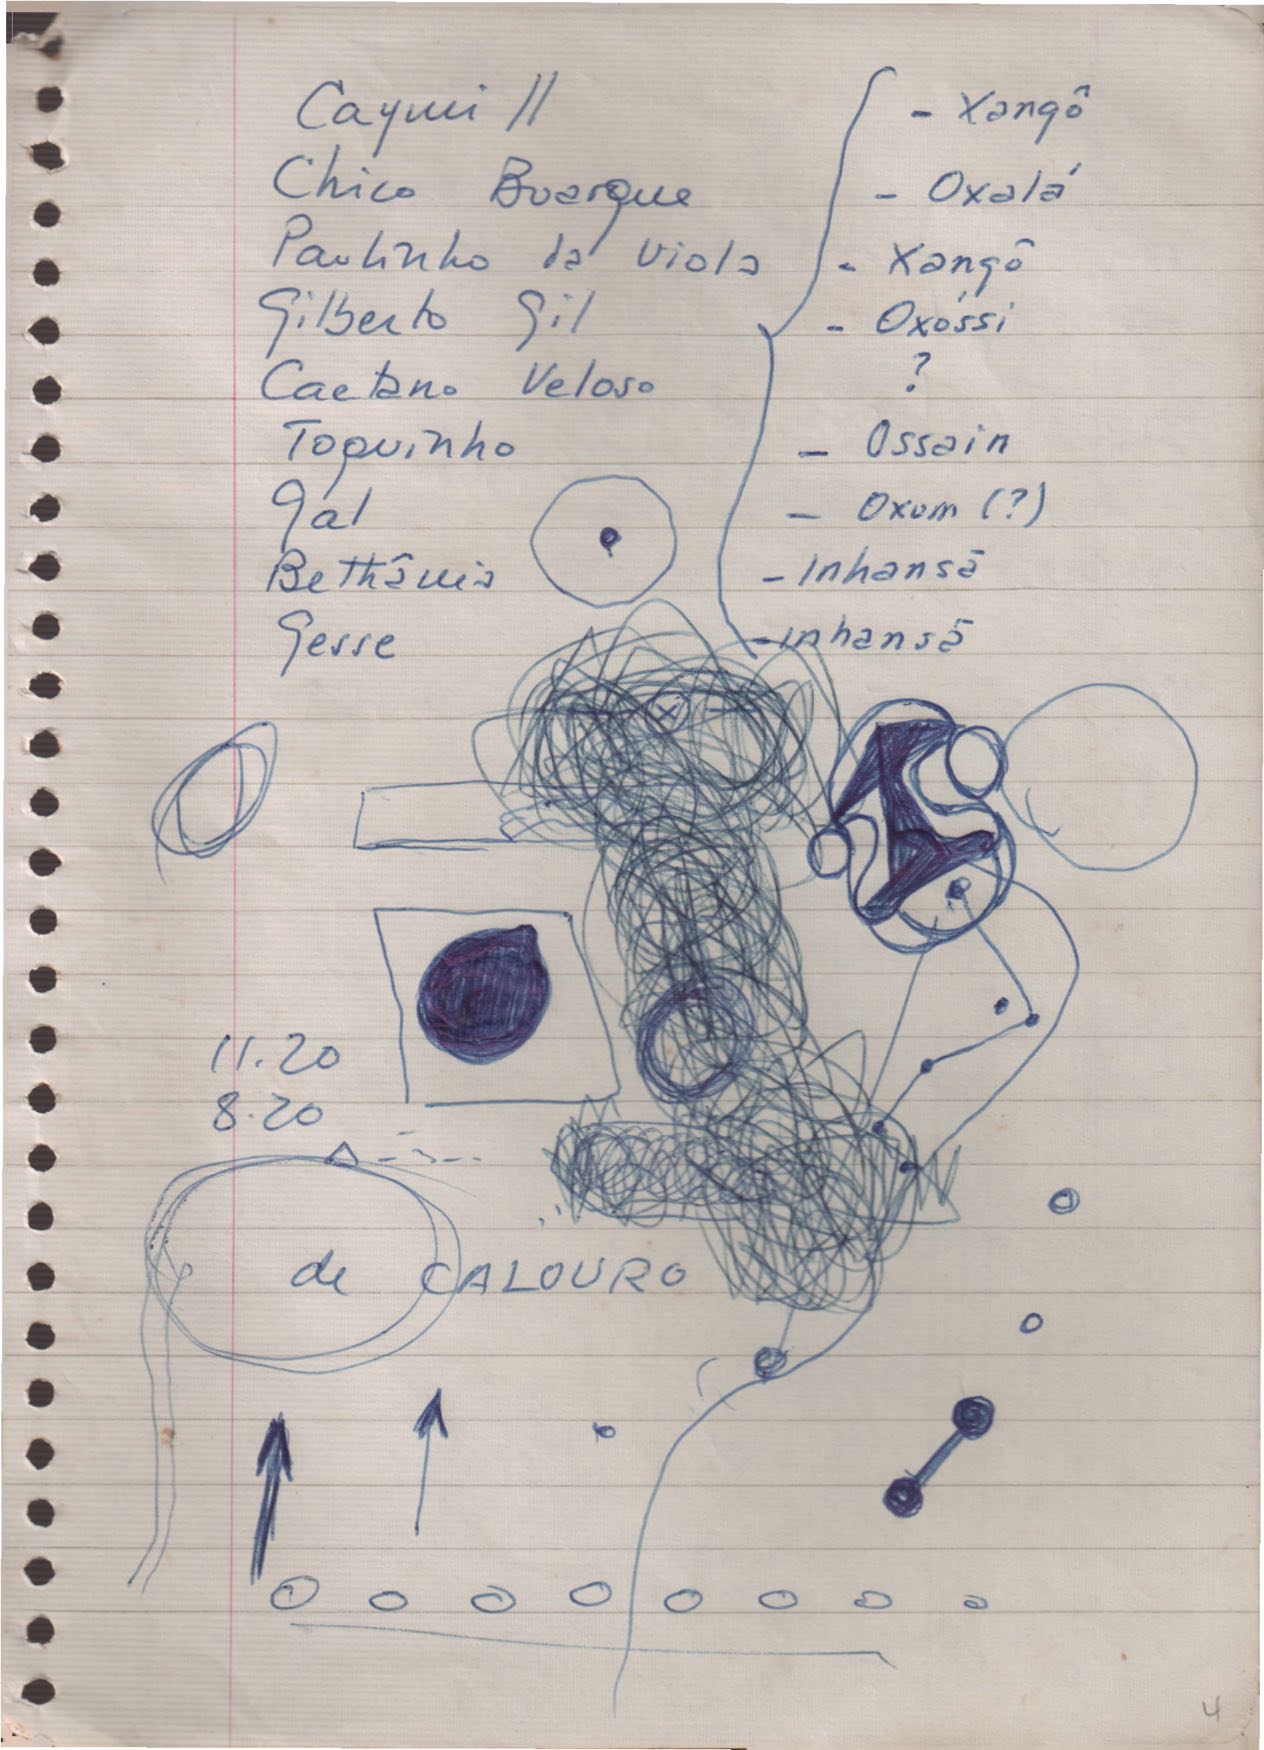 Caymi || - Xangô
Chico Buarque - Oxalá
Paulinho da Viola - Xangô
Gilberto Gil - Oxóssi
Caetano Veloso ?
Toquinho - Ossain
Gal - Oxum (?)
Bethânia - Inhansã
Gesse - Inhansã
11.20
8.20
de CALOURO
4